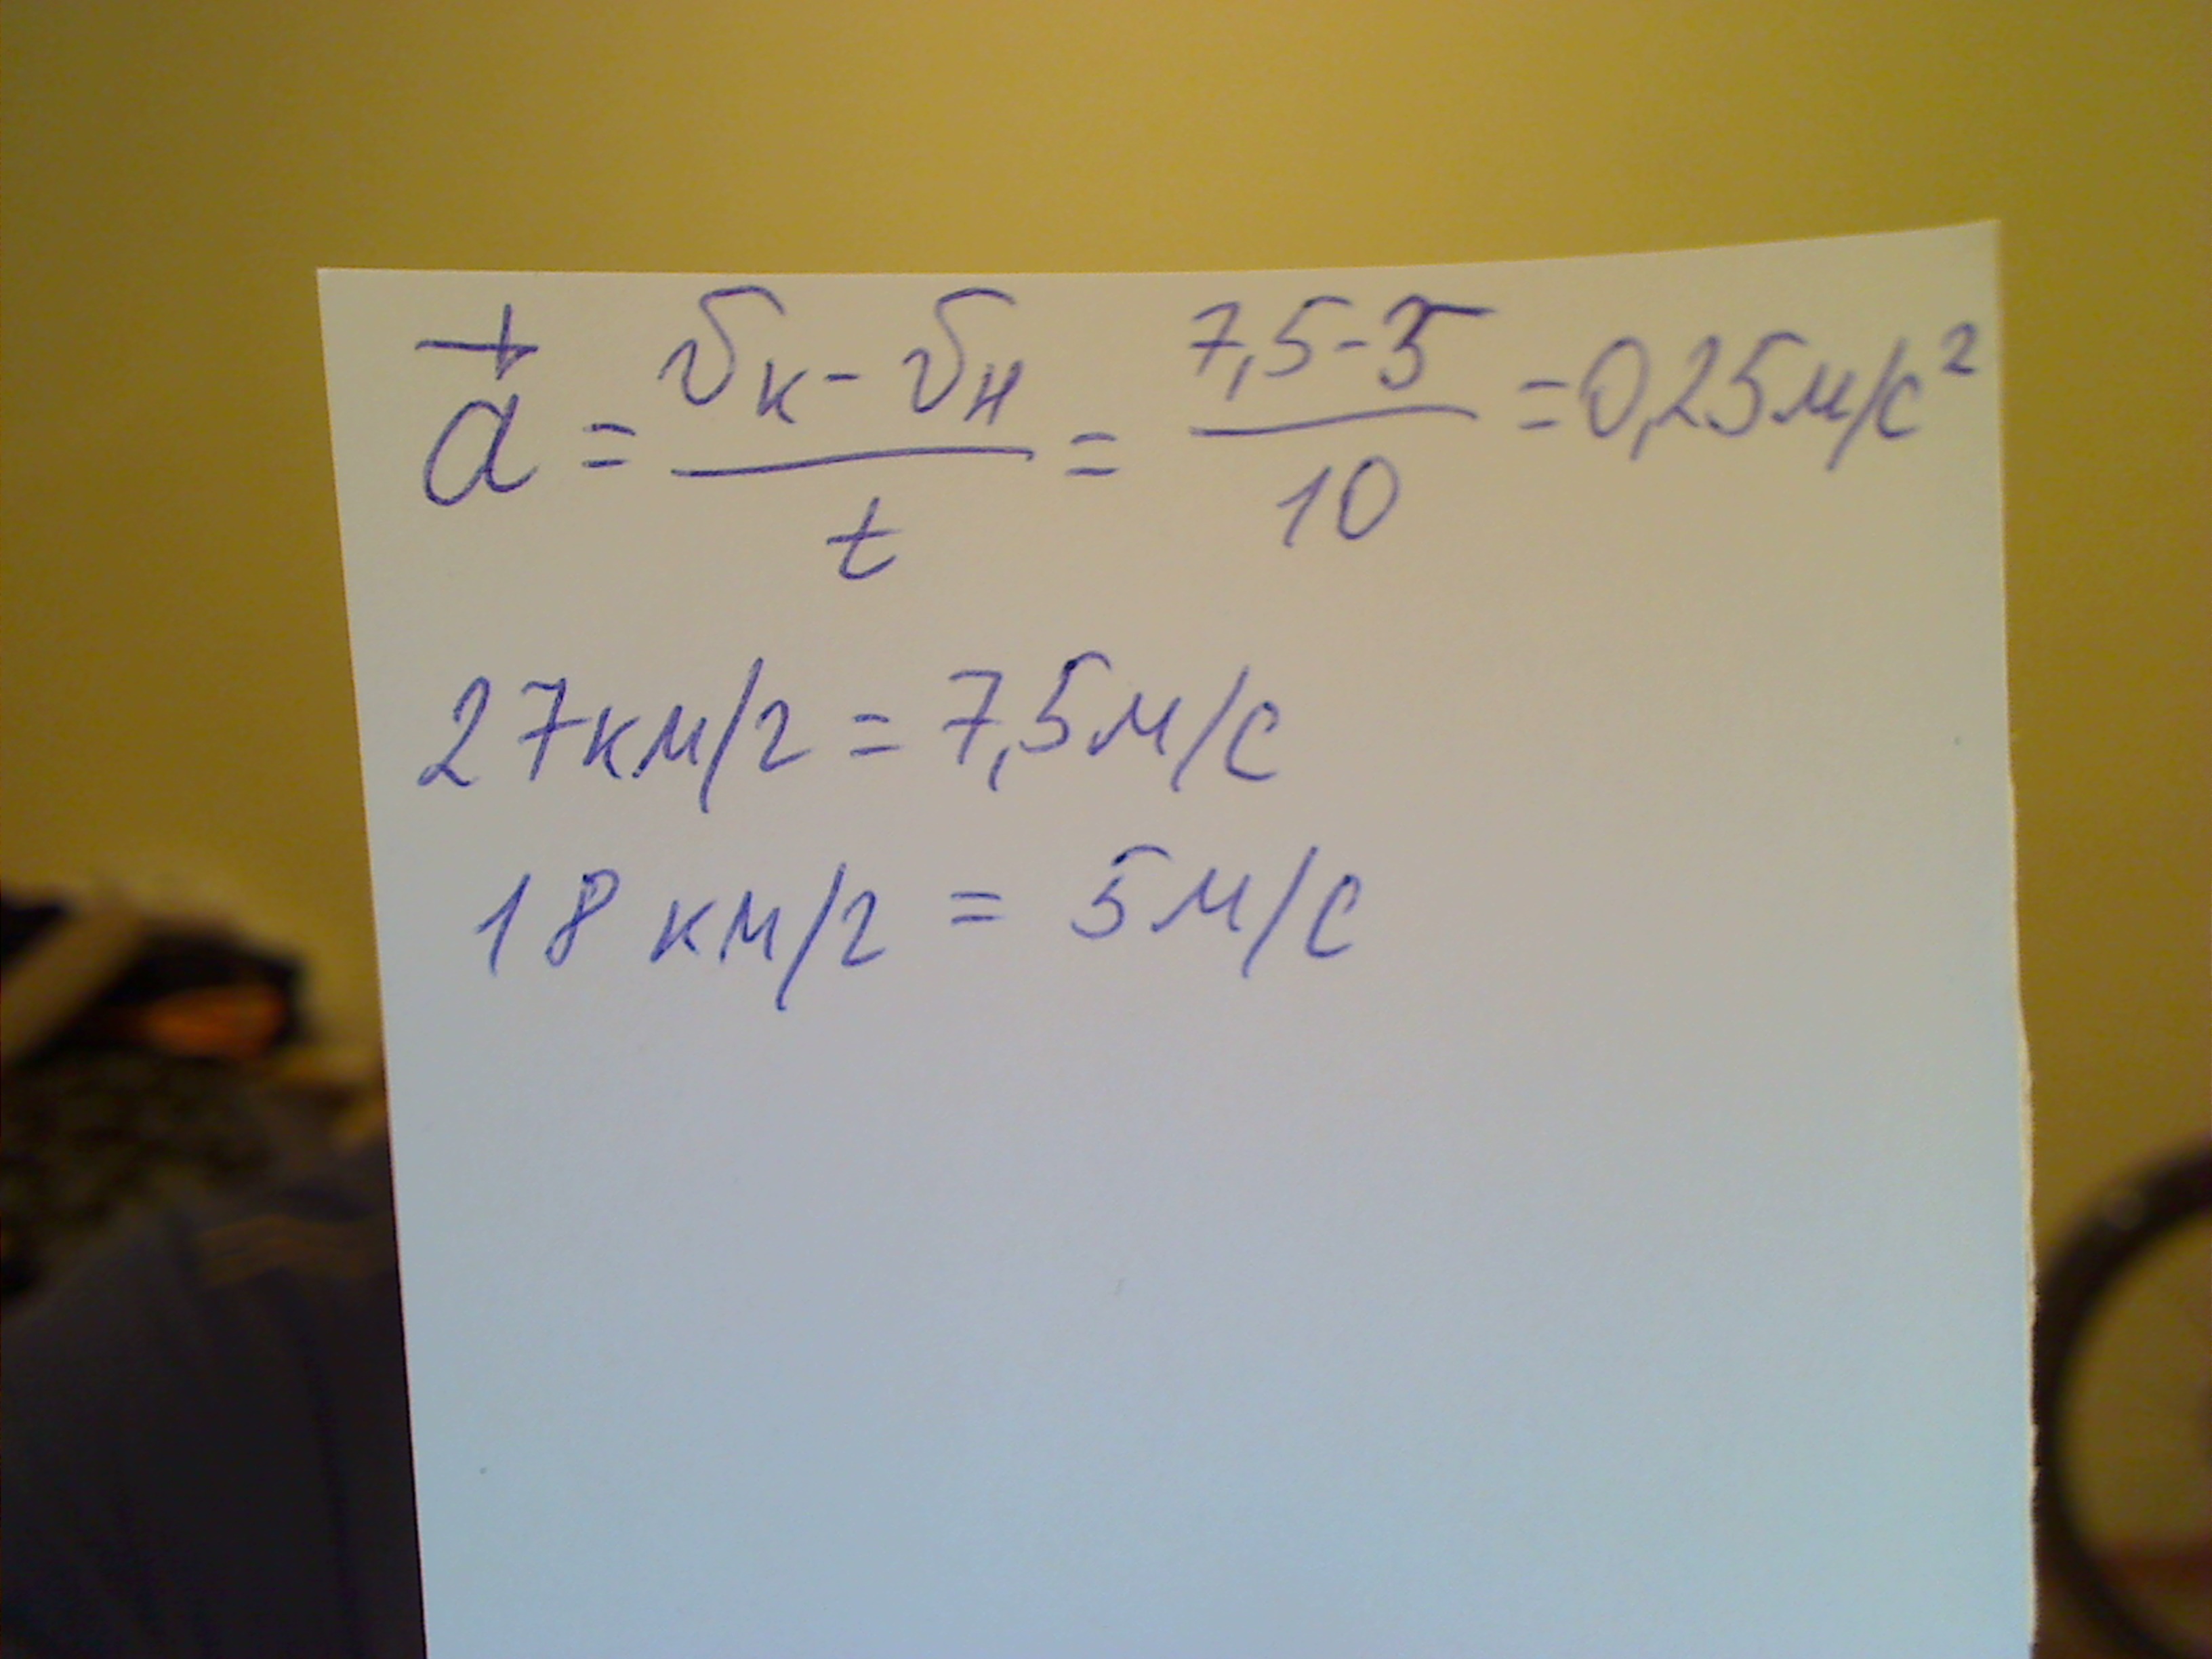 a⃗ = (υк - υн) / t = (7,5-5) / 10 = 0,25м/с²
27км/г = 7,5м/с
18 км/г = 5м/с